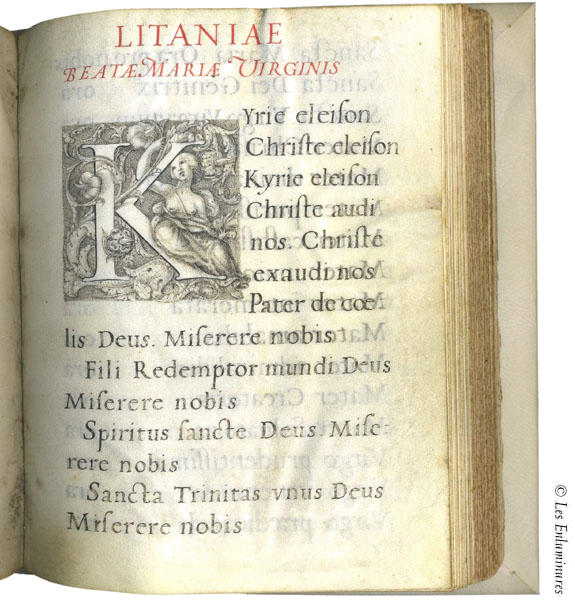 LITANIAE
BEATÆ MARIÆ VIRGINIS
KYrie eleiſon
Chriſte eleiſon
Kyrie eleiſon
Chriſte audi
nos. Chriſte
exaudi nos
Pater de cœ
lis Deus. Miſerere nobis
Fili Redemptor mundi Deus
Miſerere nobis
Spiritus ſancte Deus Miſe-
rere nobis
Sancta Trinitas vnus Deus
Miſerere nobis
© Les Enluminures